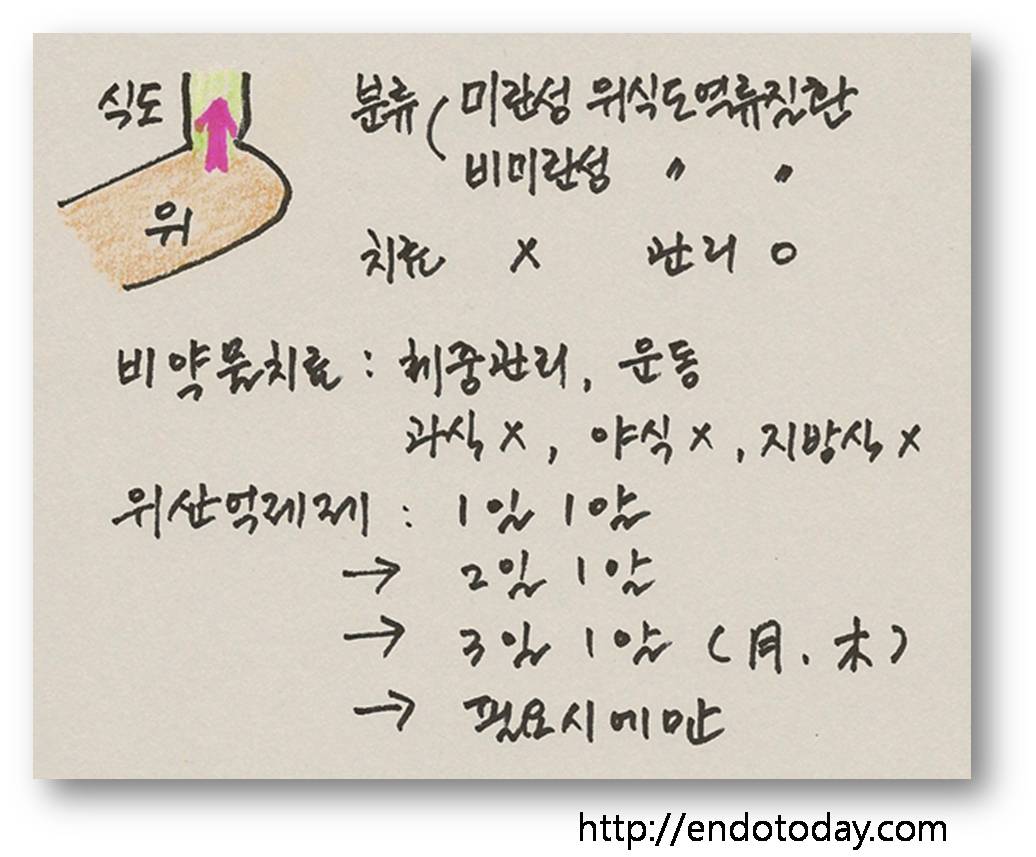 식도
위
분류 ( 미란성 위식도역류질환
비미란성 〃 〃
치료 X 관리 O
비약물치료 : 체중관리, 운동
과식 X, 야식 X, 지방식 X
위산억제제 : 1일 1알
→ 2일 1알
→ 3일 1알 (月, 木)
→ 필요시에만
http://endotoday.com